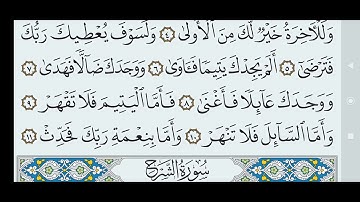 وَلَلْآخِرَةُ خَيْرٌ لَّكَ مِنَ الْأُولَىٰ ٤ وَلَسَوْفَ يُعْطِيكَ رَبُّكَ
فَتَرْضَىٰ ٥ أَلَمْ يَجِدْكَ يَتِيمًا فَآوَىٰ ٦ وَوَجَدَكَ ضَالًّا فَهَدَىٰ ٧
وَوَجَدَكَ عَائِلًا فَأَغْنَىٰ ٨ فَأَمَّا الْيَتِيمَ فَلَا تَقْهَرْ ٩
وَأَمَّا السَّائِلَ فَلَا تَنْهَرْ ١٠ وَأَمَّا بِنِعْمَةِ رَبِّكَ فَحَدِّثْ ١١
سُورَةُ الشَّرْحِ